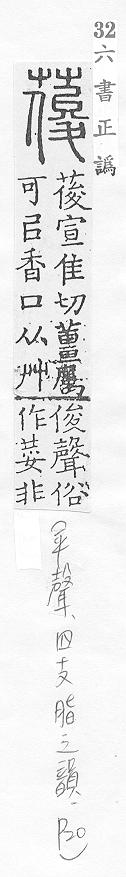 32
六書正譌
葰
葰宣隹切薑屬
可㠯香口从艸
俊聲俗
作荽非
(平聲、四支脂之韻. P20)